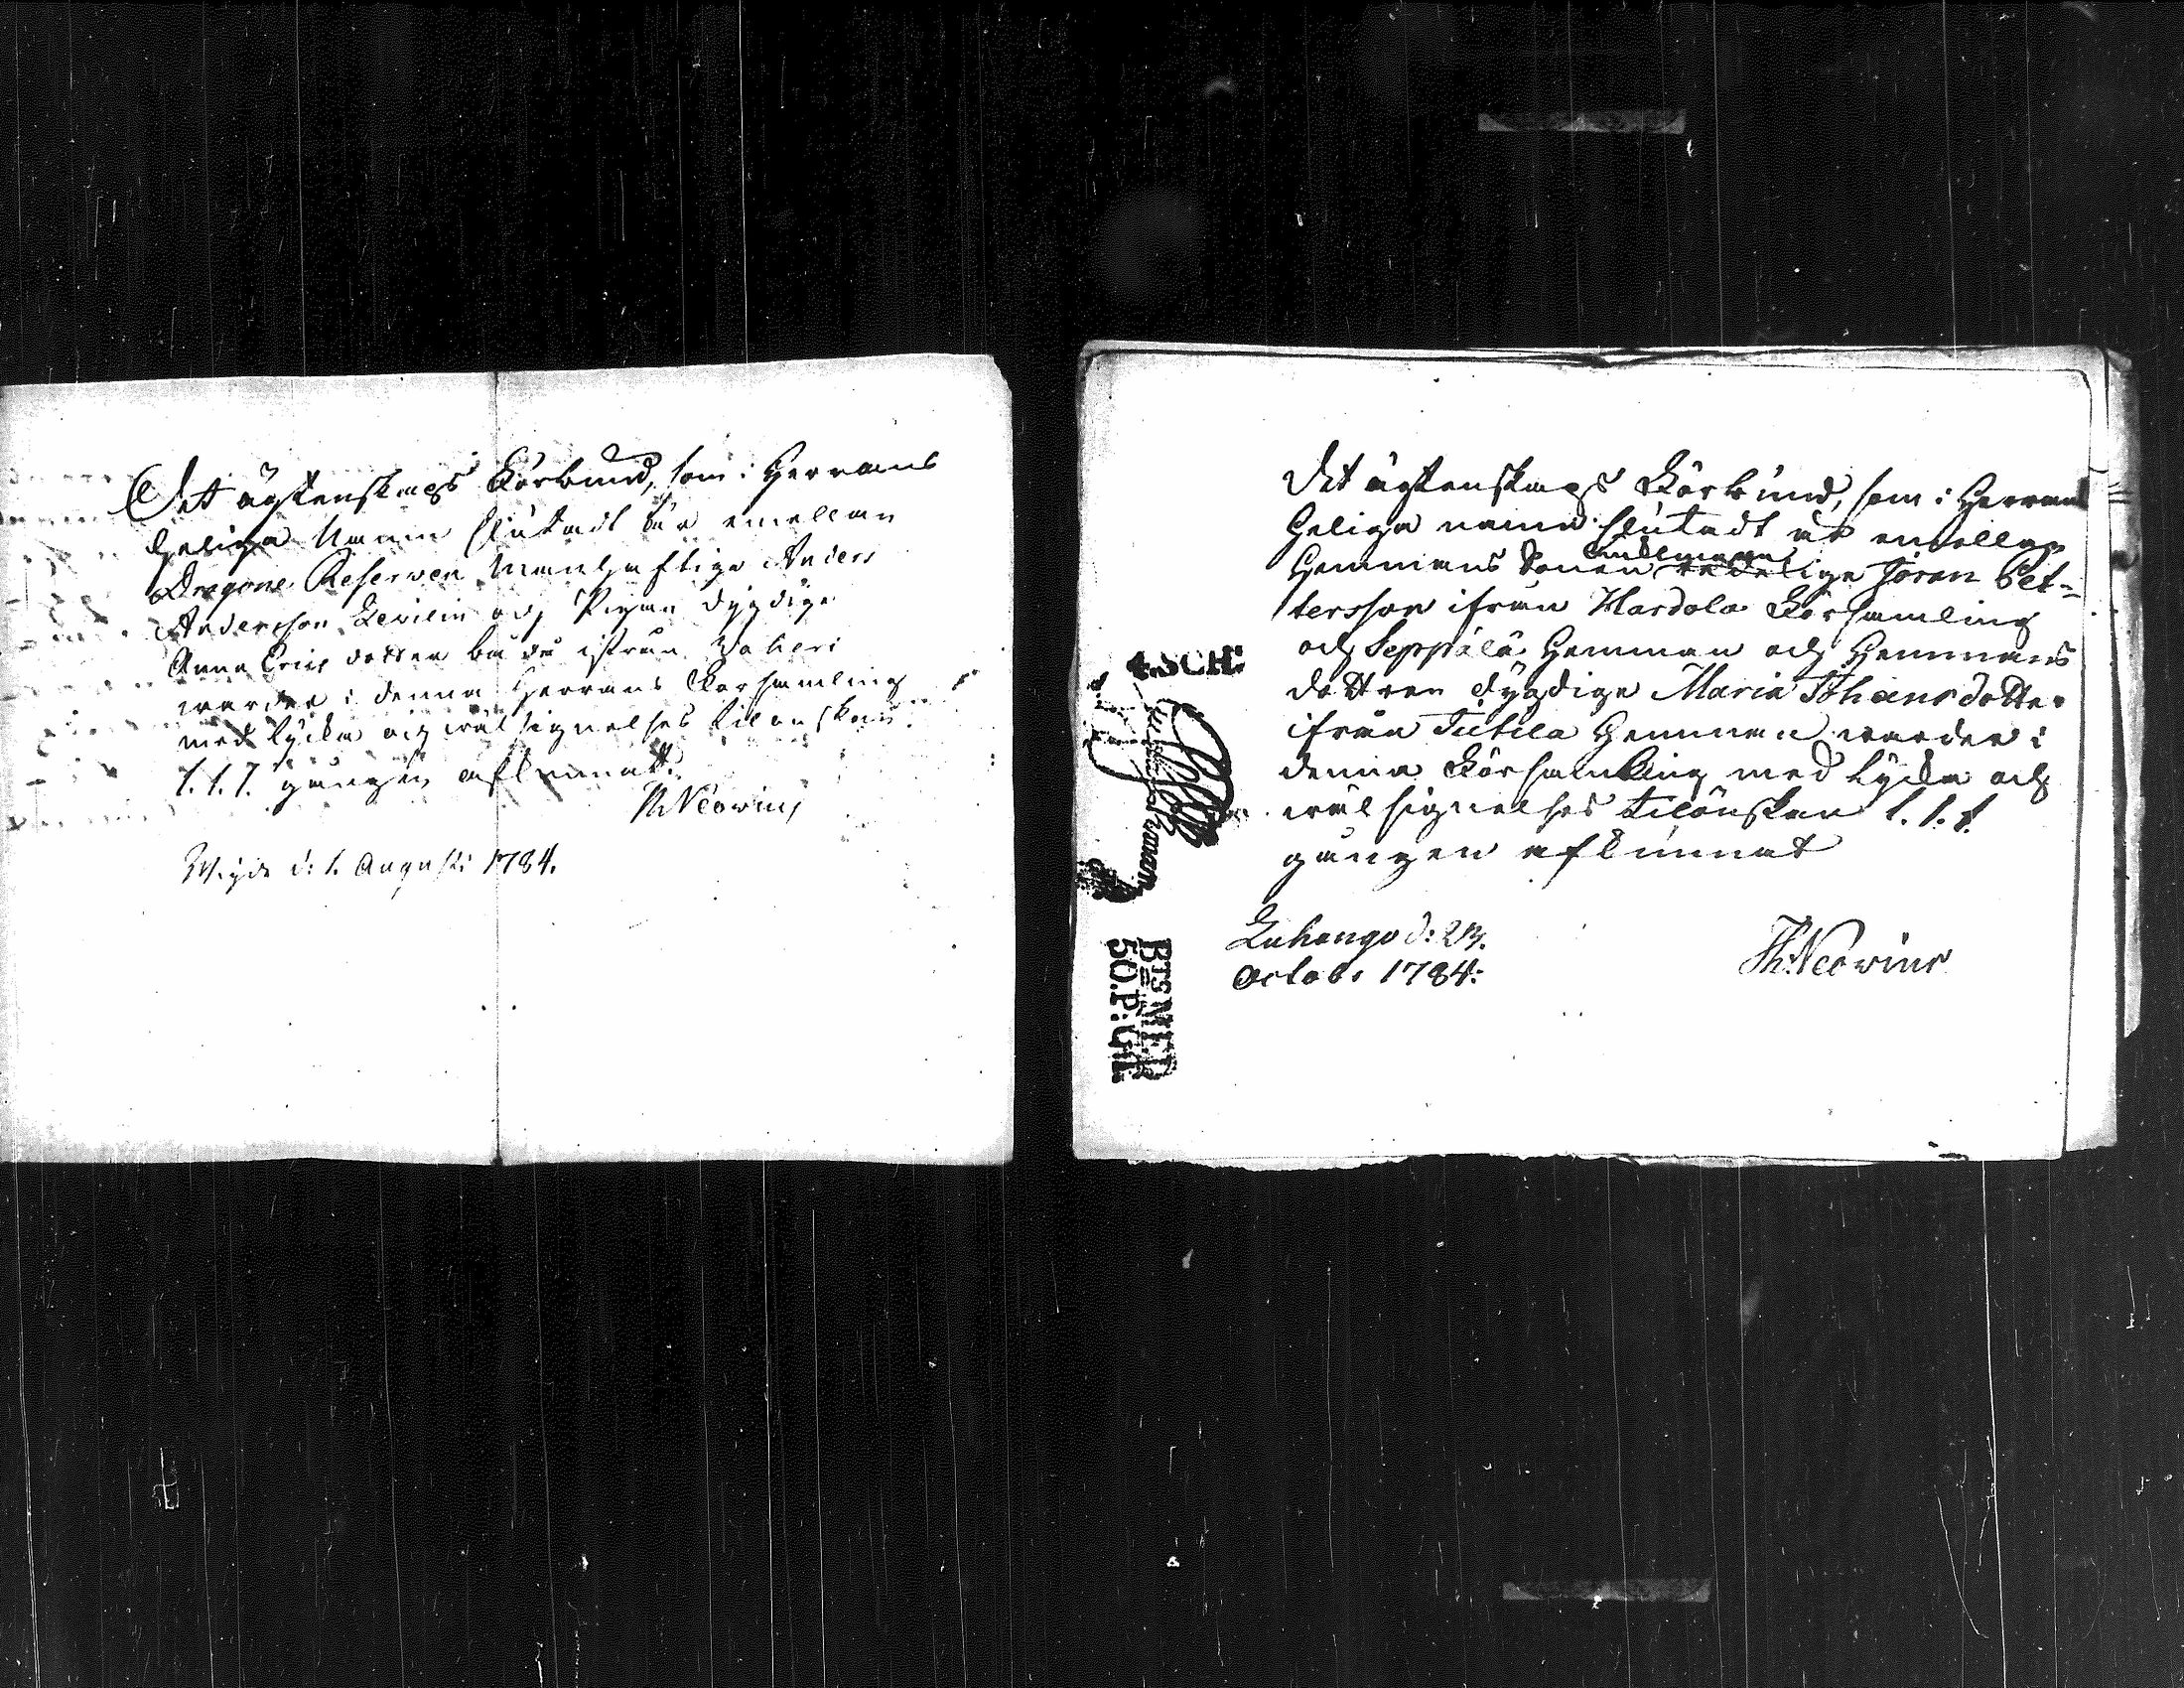 Det ägtenskaps Förbund, som i Herrans
heliga Namn slutadt är emellan
Dragone Reserven Manhaftige Anders
Andersson Levilin och Pigan dygdige
Anna Erics dotter både ifrån Vaheri
warder i denna Herrans Församling
med lycka och wälsignelses tilönskan
1. 1. 1. gången aflunnat.
Th Neovius
Wigde d: 1. Augusti 1784.
Det ägtenskaps Förbund, som i Herrans
Heliga namn slutadt är emellan
Hemmans Sonen redelige Jöran Pet-
tersson ifrån Hardola Församling
och Seppälä Hemman och Hemmans
dottren dygdige Maria Johansdotter
ifrån Tutila Hemman warder i
denna Församling med lycka och
wälsignelses tilönskan 1. 1. 1.
gången aflunnat
Luhango d: 23.
Octob: 1784:
Th Neovius
4.SCH:
BTS MED
50.P:Ct: